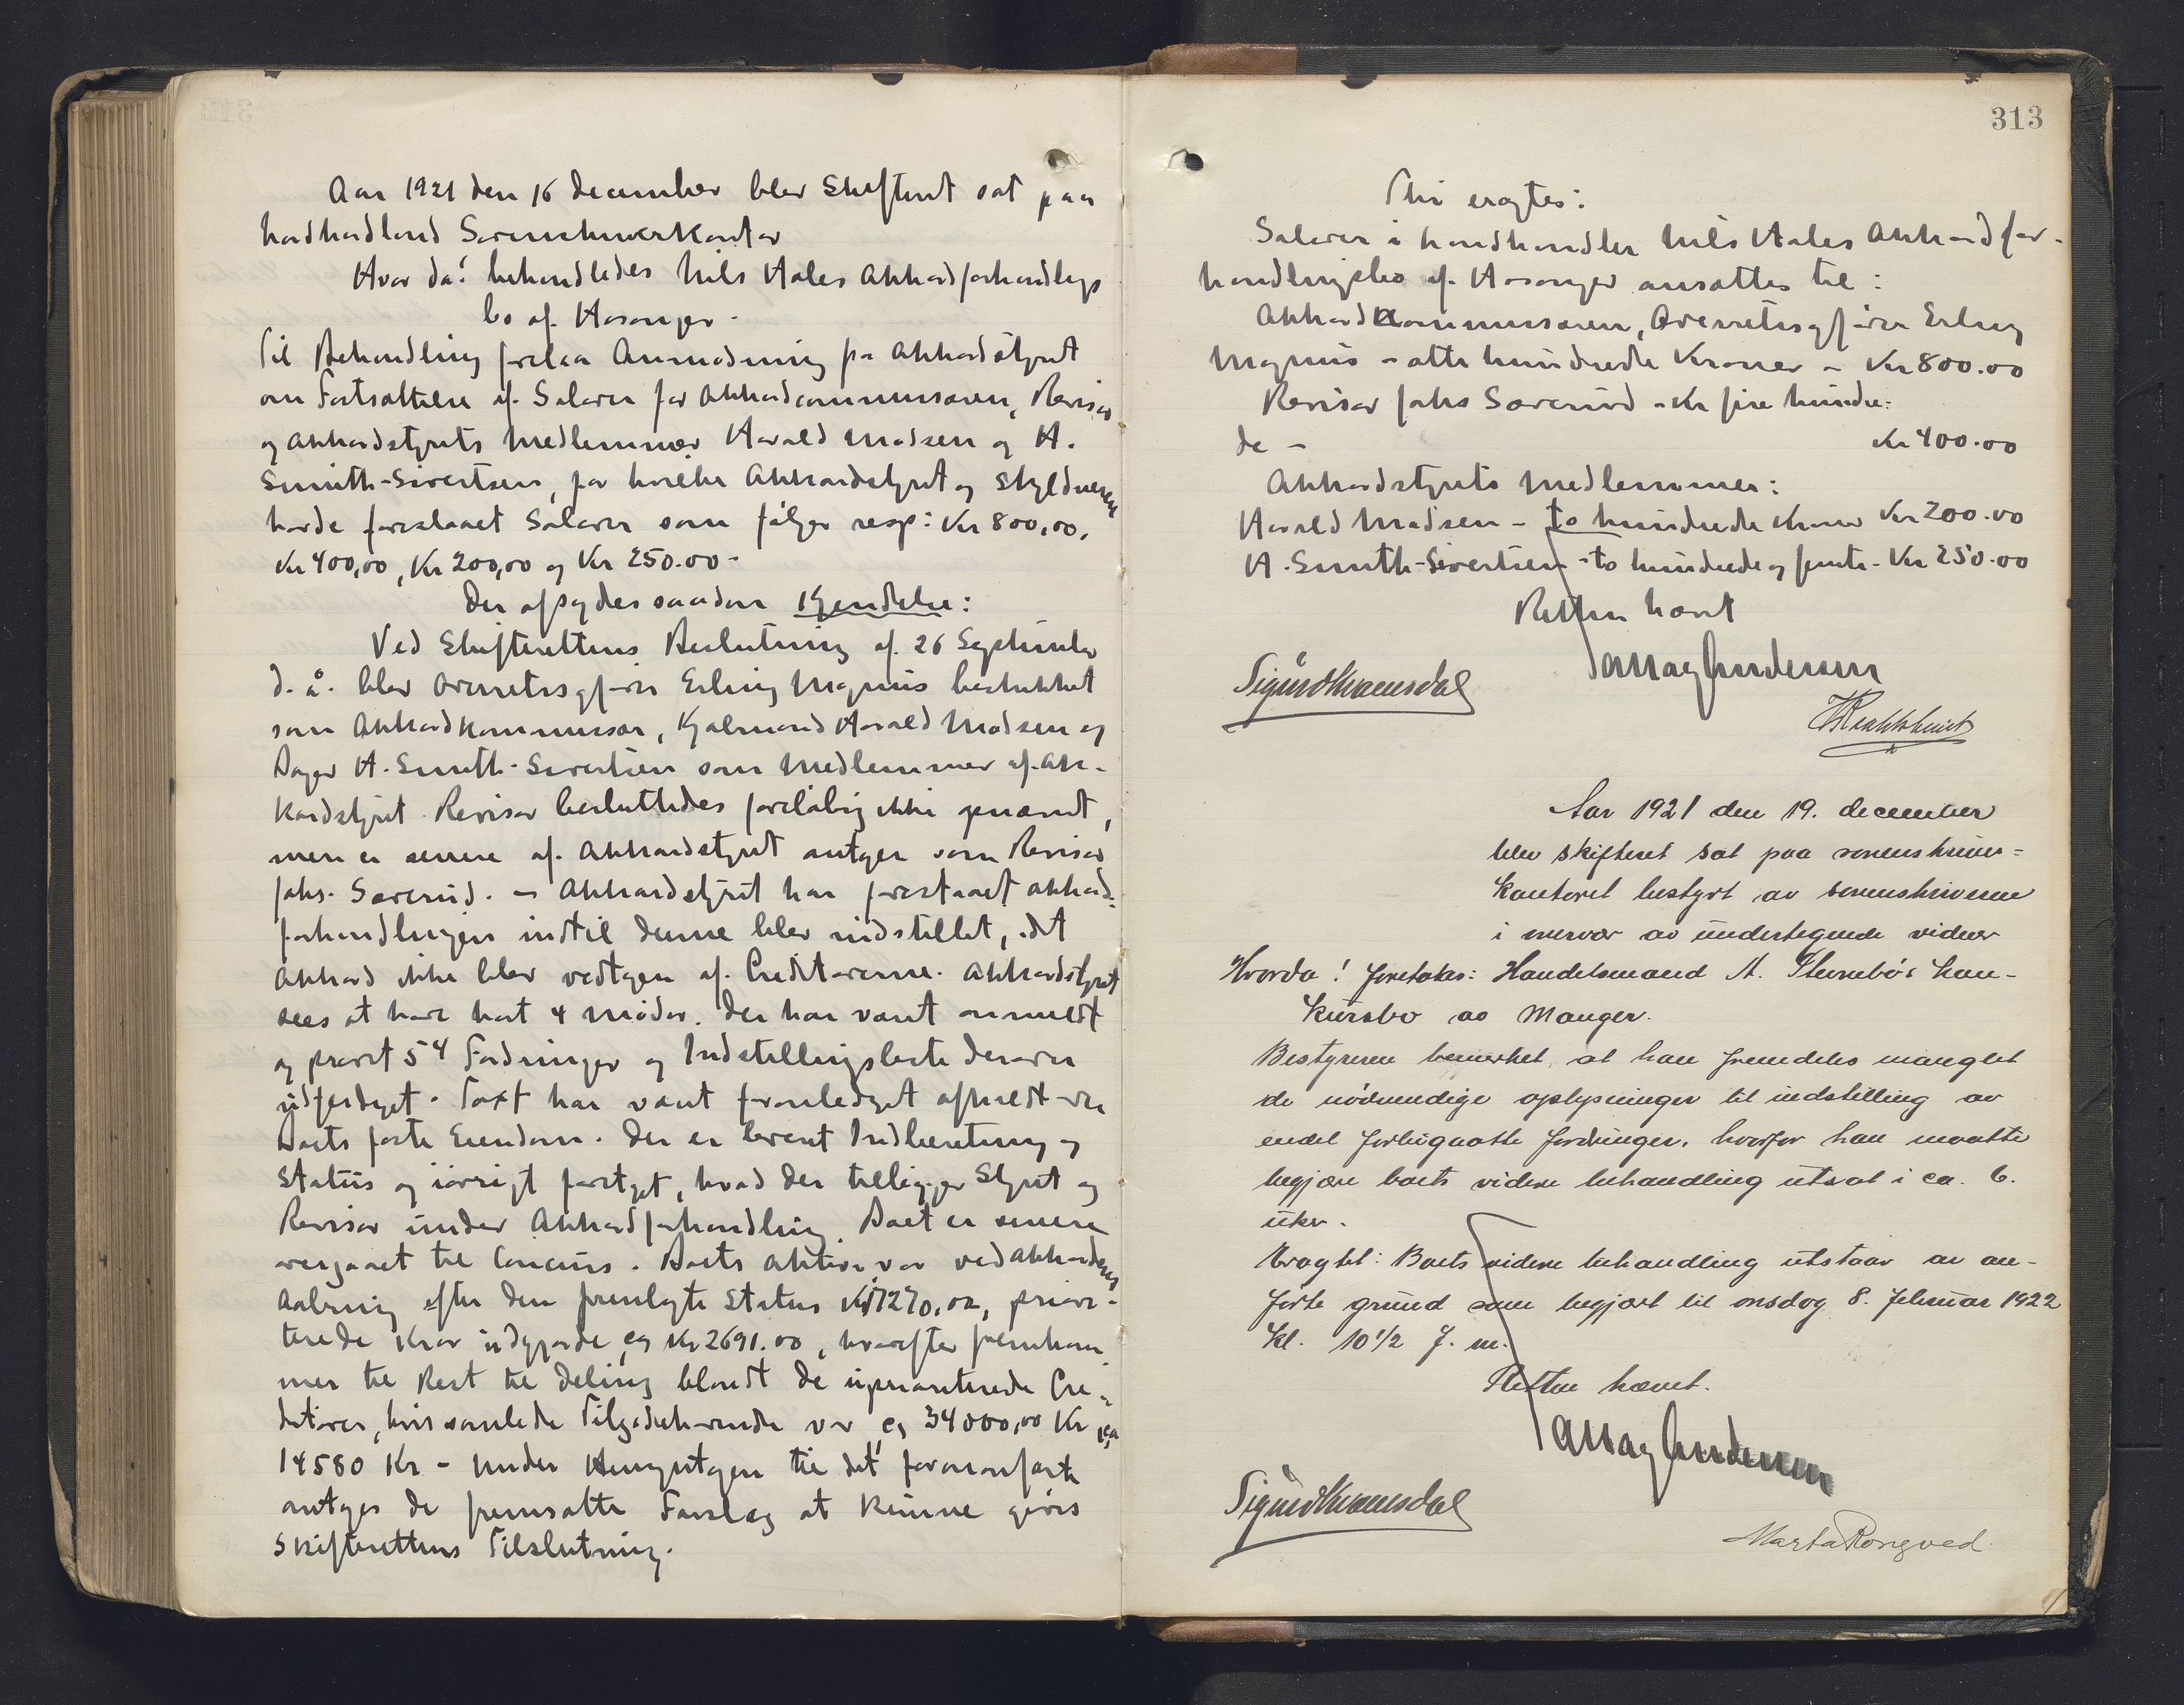 Aar 1921 den 16 december blev Skifteret sat paa
Nordhordland Sorenskriverkontor
Hvor da! behandledes Nils Hales Akkordforhandlings
bo af Hosanger.
Til Behandling forelaa Anmodning fra Akkordstyret
om Fastsættelse af Salærer for Akkordcommissæren, Revisor
og Akkordstyrets Medlemmer Harald Madsen og H.
Smith-Sivertsen, for hvilke Akkordstyret og Skyldneren
havde foreslaaet Salærer som følger resp: Kr 800,00,
Kr 400,00, Kr 200,00 og Kr 250.00-
Der afsagdes saadan Kjendelse:
Ved Skifterettens Beslutning af 26 September
d. å. blev Overretssagfører Erling Magnus beskikket
som Akkordkommissær, Kjøbmand Harald Madsen og
Bager H. Smith-Sivertsen som Medlemmer af Ak-
kordstyret. Revisor besluttedes foreløbig ikke opnævnt,
men er senere af Akkordstyret antagen som Revisor
Johs. Sørerud. - Akkordstyret har forestaaet Akkord-
forhandlingen indtil denne blev indstillet, idet
Akkord ikke blev vedtagen af Creditorerne. Akkordstyret
sees at have havt 4 Møder. Der har været anmeldt
og prøvet 54 Fordringer og Indstillingsliste derover
udfærdiget. Taxt har været foranlediget afholdt over
Boets faste Eiendom. Der er levert Indberetning og
Status og iøvrigt foretaget, hvad der tilligger Styret og
Revisor under Akkordforhandling. Boet er senere
overgaaet til Concurs. Boets Aktiva var ved Akkordens
Aabning efter den fremlagte Status Kr 17270,02, priori-
terede Krav udgjorde ca Kr 2691.00, hvorefter fremkom-
mer til Rest til Deling blandt de uprioriterede Cre-
ditorer, hvis samlede Tilgodehavende var ca 34000,00 Kr ca
14580 Kr - Under Hensyntagen til det forananførte
antages de fremsatte Forslag at kunne gives
Skifterettens Tilslutning.
313
Thi eragtes:
Salærer i Landhandler Nils Hales Akkordfor-
handlingsbo af Hosanger ansættes til:
Akkordkommissæren, Overretssagfører Erling
Magnus - otte hundrede Kroner - Kr 800.00
Revisor Johs Sørerud - Kr fire hundre-
de - Kr 400.00
Akkordstyrets Medlemmer:
Harald Madsen - to hundrede Kroner Kr 200.00
H. Smith-Sivertsen - to hundrede og femti - Kr 250.00
Retten hævet
A Mag Andersen
Sigurd Kvamsdal
Aar 1921 den 19. december
blev skifteret sat paa sorenskriver=
kontoret bestyrt av sorenskriveren
i nærvær av undertegnede vidner
Hvorda! foretokes: Handelsmand A. Sturebø's kon-
kursbo av Manger.
Bestyreren bemerket, at han fremdeles manglet
de nødvendige oplysninger til indstilling av
endel forliggende fordringer, hvorfor han maatte
begjære boets videre behandling utsat i ca. 6.
uker.
Eragtet: Boets videre behandling utstaar av an-
førte grund som begjært til onsdag 8. februar 1922
kl. 10 1/2 f. m.
Retten hævet.
A Mag Andersen
Sigurd Kvamsdal
Marta Rongved